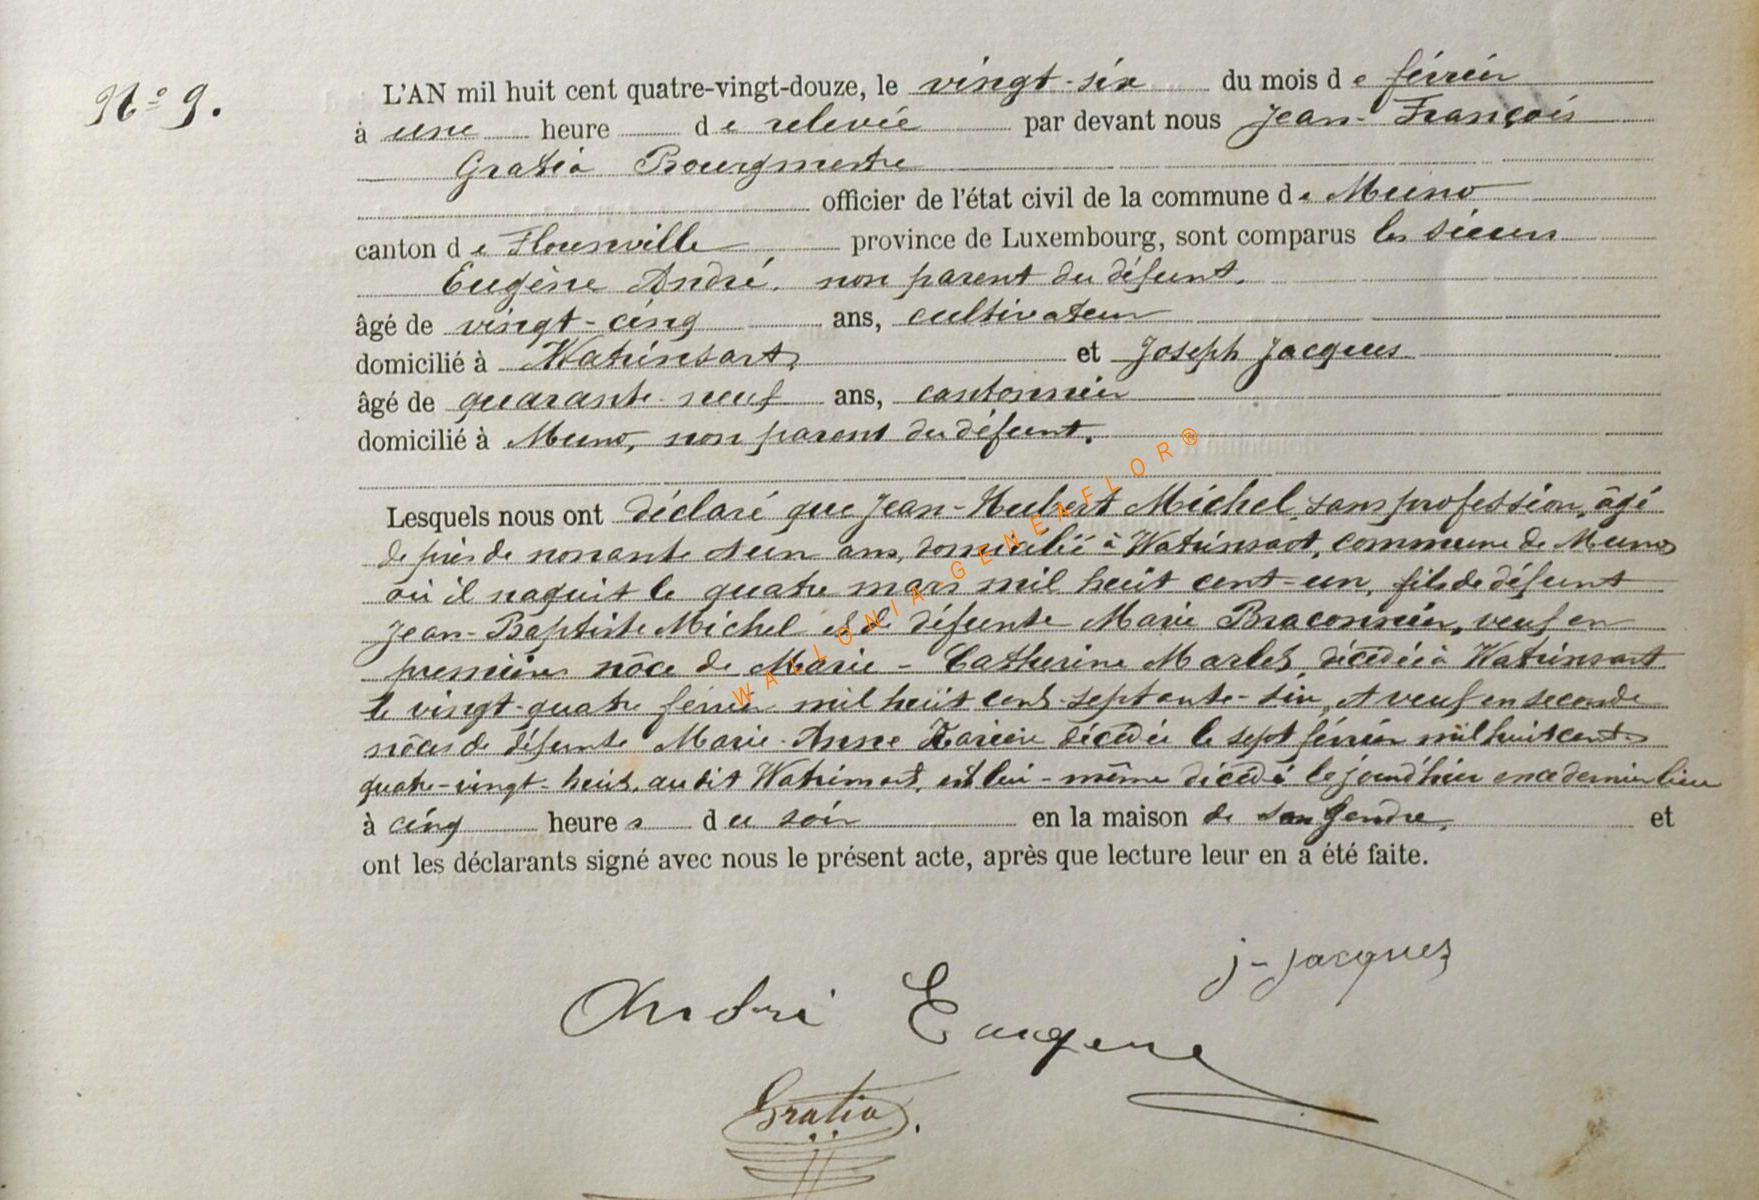 N° 9.
L'AN mil huit cent quatre-vingt-douze, le vingt-six du mois de février
à une heure de relevée par devant nous Jean-François
Gratia Bourgmestre
officier de l'état civil de la commune de Muno
canton de Florenville province de Luxembourg, sont comparus les sieurs
Eugène André, non parent du défunt,
âgé de vingt-cinq ans, cultivateur
domicilié à Watrinsart, et Joseph Jacques
âgé de quarante-neuf ans, cantonnier
domicilié à Muno, non parent du défunt.
Lesquels nous ont déclaré que Jean-Hubert Michel, sans profession, âgé
de près de nonante et un ans, domicilié à Watrinsart, commune de Muno
où il naquit le quatre mars mil huit cent-un, fils de défunt
Jean-Baptiste Michel et de défunte Marie Braconnier, veuf en
premières nôce de Marie-Catherine Marlet, décédée à Watrinsart
le vingt-quatre février mil huit cent-septante-six, et veuf en seconde
nôces de défunte Marie-Anne décédée le sept février mil huit cent
quatre-vingt-huit, au dit Watrinsart, est lui-même décédé le jourd'hier en ce dernier lieu
à cinq heures du soir en la maison de son gendre, et
ont les déclarants signé avec nous le présent acte, après que lecture leur en a été faite.
J-Jacques
André Eugene
Gratia
WALLONIA-GENEAFLOR®